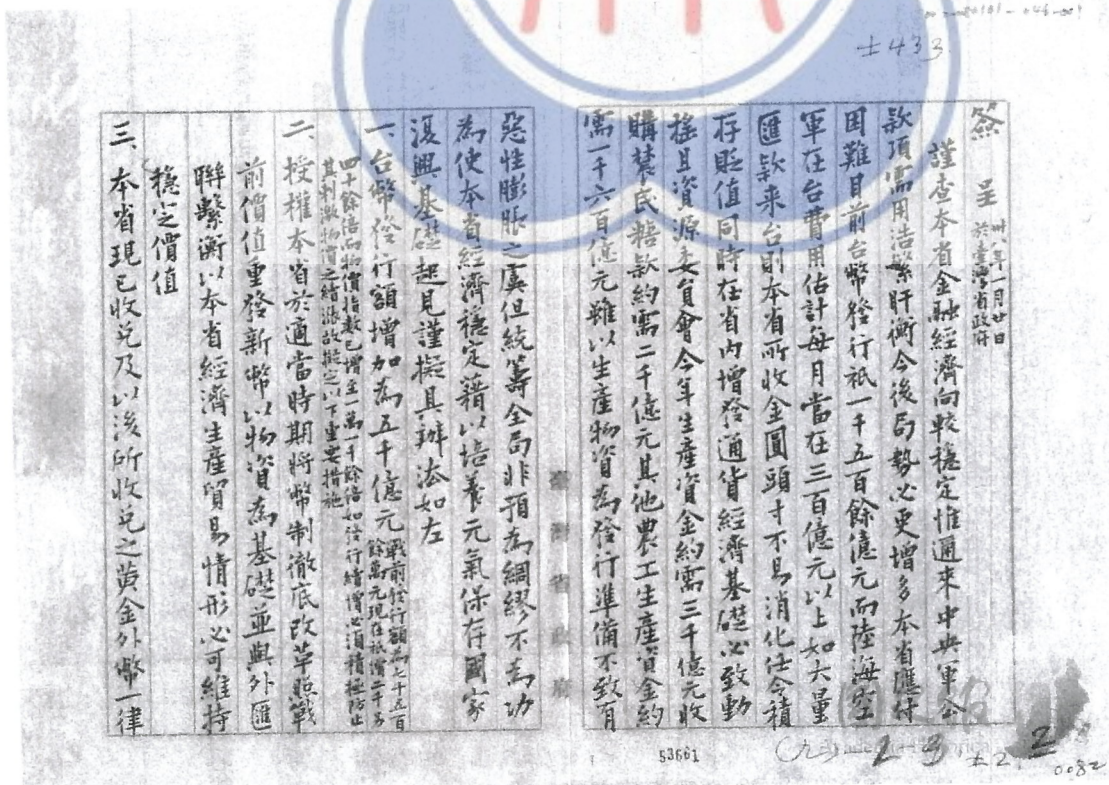 士433
簽呈 卅八年一月廿日
於臺灣省政府
謹查本省金融經濟向較穩定惟邇來中央軍公
款項需用浩繁盱衡今後局勢必更增多本省應付
困難目前台幣發行祇一千五百餘億元而陸海空
軍在台費用估計每月當在三百億元以上如大量
匯款來台則本省所收金圓頭寸不易消化任令積
存貶值同時在省內增發通貨經濟基礎必致動
搖且資源委員會今年生產資金約需三千億元收
購蔗民糖款約需二千億元其他農工生產資金約
需一千六百億元雖以生產物資為發行準備不致有
臺灣省政府
惡性膨脹之虞但統籌全局非預為綢繆不為功
為使本省經濟穩定藉以培養元氣保存國家
復興基礎起見謹擬具辦法如左
一、台幣發行額增加為五千億元 戰前發行額為七千五百
餘萬元現在祇增二千
四十餘倍而物價指數已增至一萬一千餘倍如發行續增必須積極防止
其刺激物價之續漲故擬定以下重要措施
二、授權本省於適當時期將幣制徹底改革照戰
前價值重發新幣以物資為基礎並與外匯
聯繫衡以本省經濟生產貿易情形必可維持
穩定價值
三、本省現已收兌及以後所收兌之黃金外幣一律
53661
0082